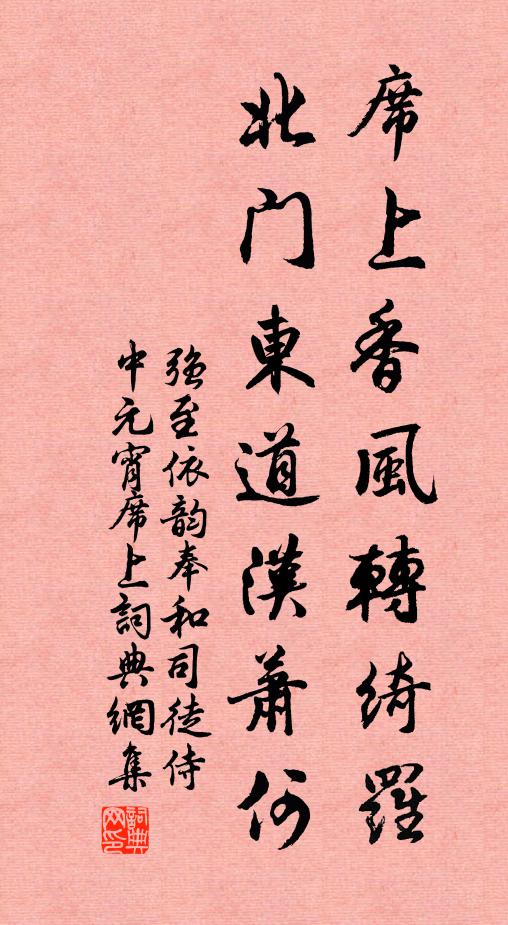 席上香風轉綺羅
北门東道漢蕭何
強至依韵奉和司徒侍
中元宵席上詞典網集
詞典
网印